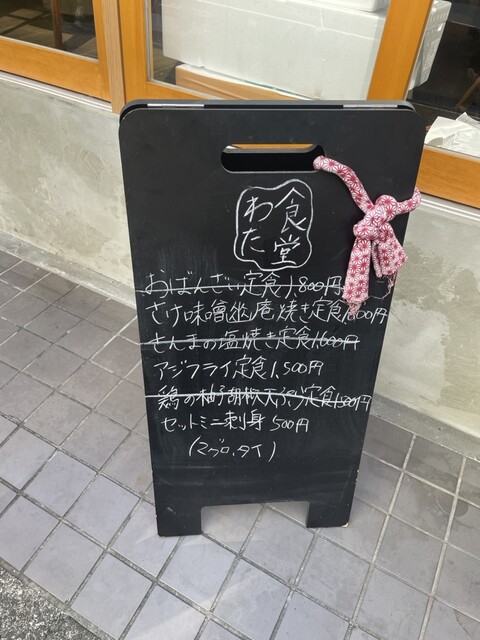 食堂
わた
おばんざい定食1,800円
さけ味噌幽庵焼き定食1,800円
さんまの塩焼き定食1,600円
アジフライ定食1,500円
鶏の柚子胡椒天ぷら定食1,500円
セットミニ刺身500円
(マグロ、タイ)